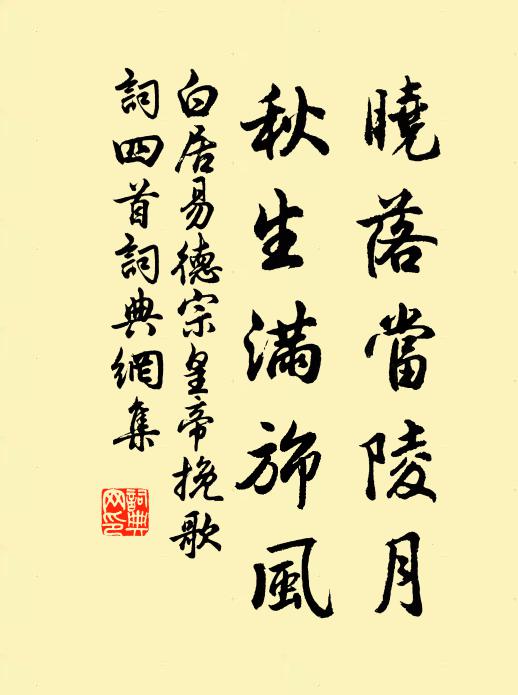 曉落當陵月
秋生滿旆風
白居易德宗皇帝挽歌
詞四首詞典網集
詞典网印